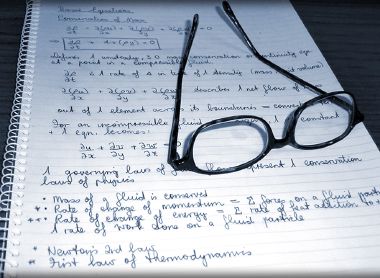 Basic Equations
Conservation of Mass
∂ρ/∂t + ∂(ρu)/∂x + ∂(ρv)/∂y + = 0
⇒ ∂ρ/∂t + div (ρu) = 0
Defines 1 unsteady, 3D mass conservation or continuity eqn
at a point in a compressible fluid.
∂ρ/∂t is 1 rate of Δ in time of 1 density (mass volume)
∂(ρu)/∂x + ∂(ρv)/∂y + describes 1 net flow of
out of 1 element across its boundaries =
For an incompressible fluid 1 constant
+ 1 eqn. becomes:
∂u/∂x + ∂v/∂y + ∂w/∂z = 0
1 governing laws of fluid flow represent 1 conservation
laws of physics
* : Mass of a fluid is conserved
** : Rate of change of momentum = Σ forces on a fluid particle
*** : Rate of change of energy = Σ rate of heat addition to +
1 rate of work done on a fluid particle
* Newton's 2nd law
* First law of thermodynamics